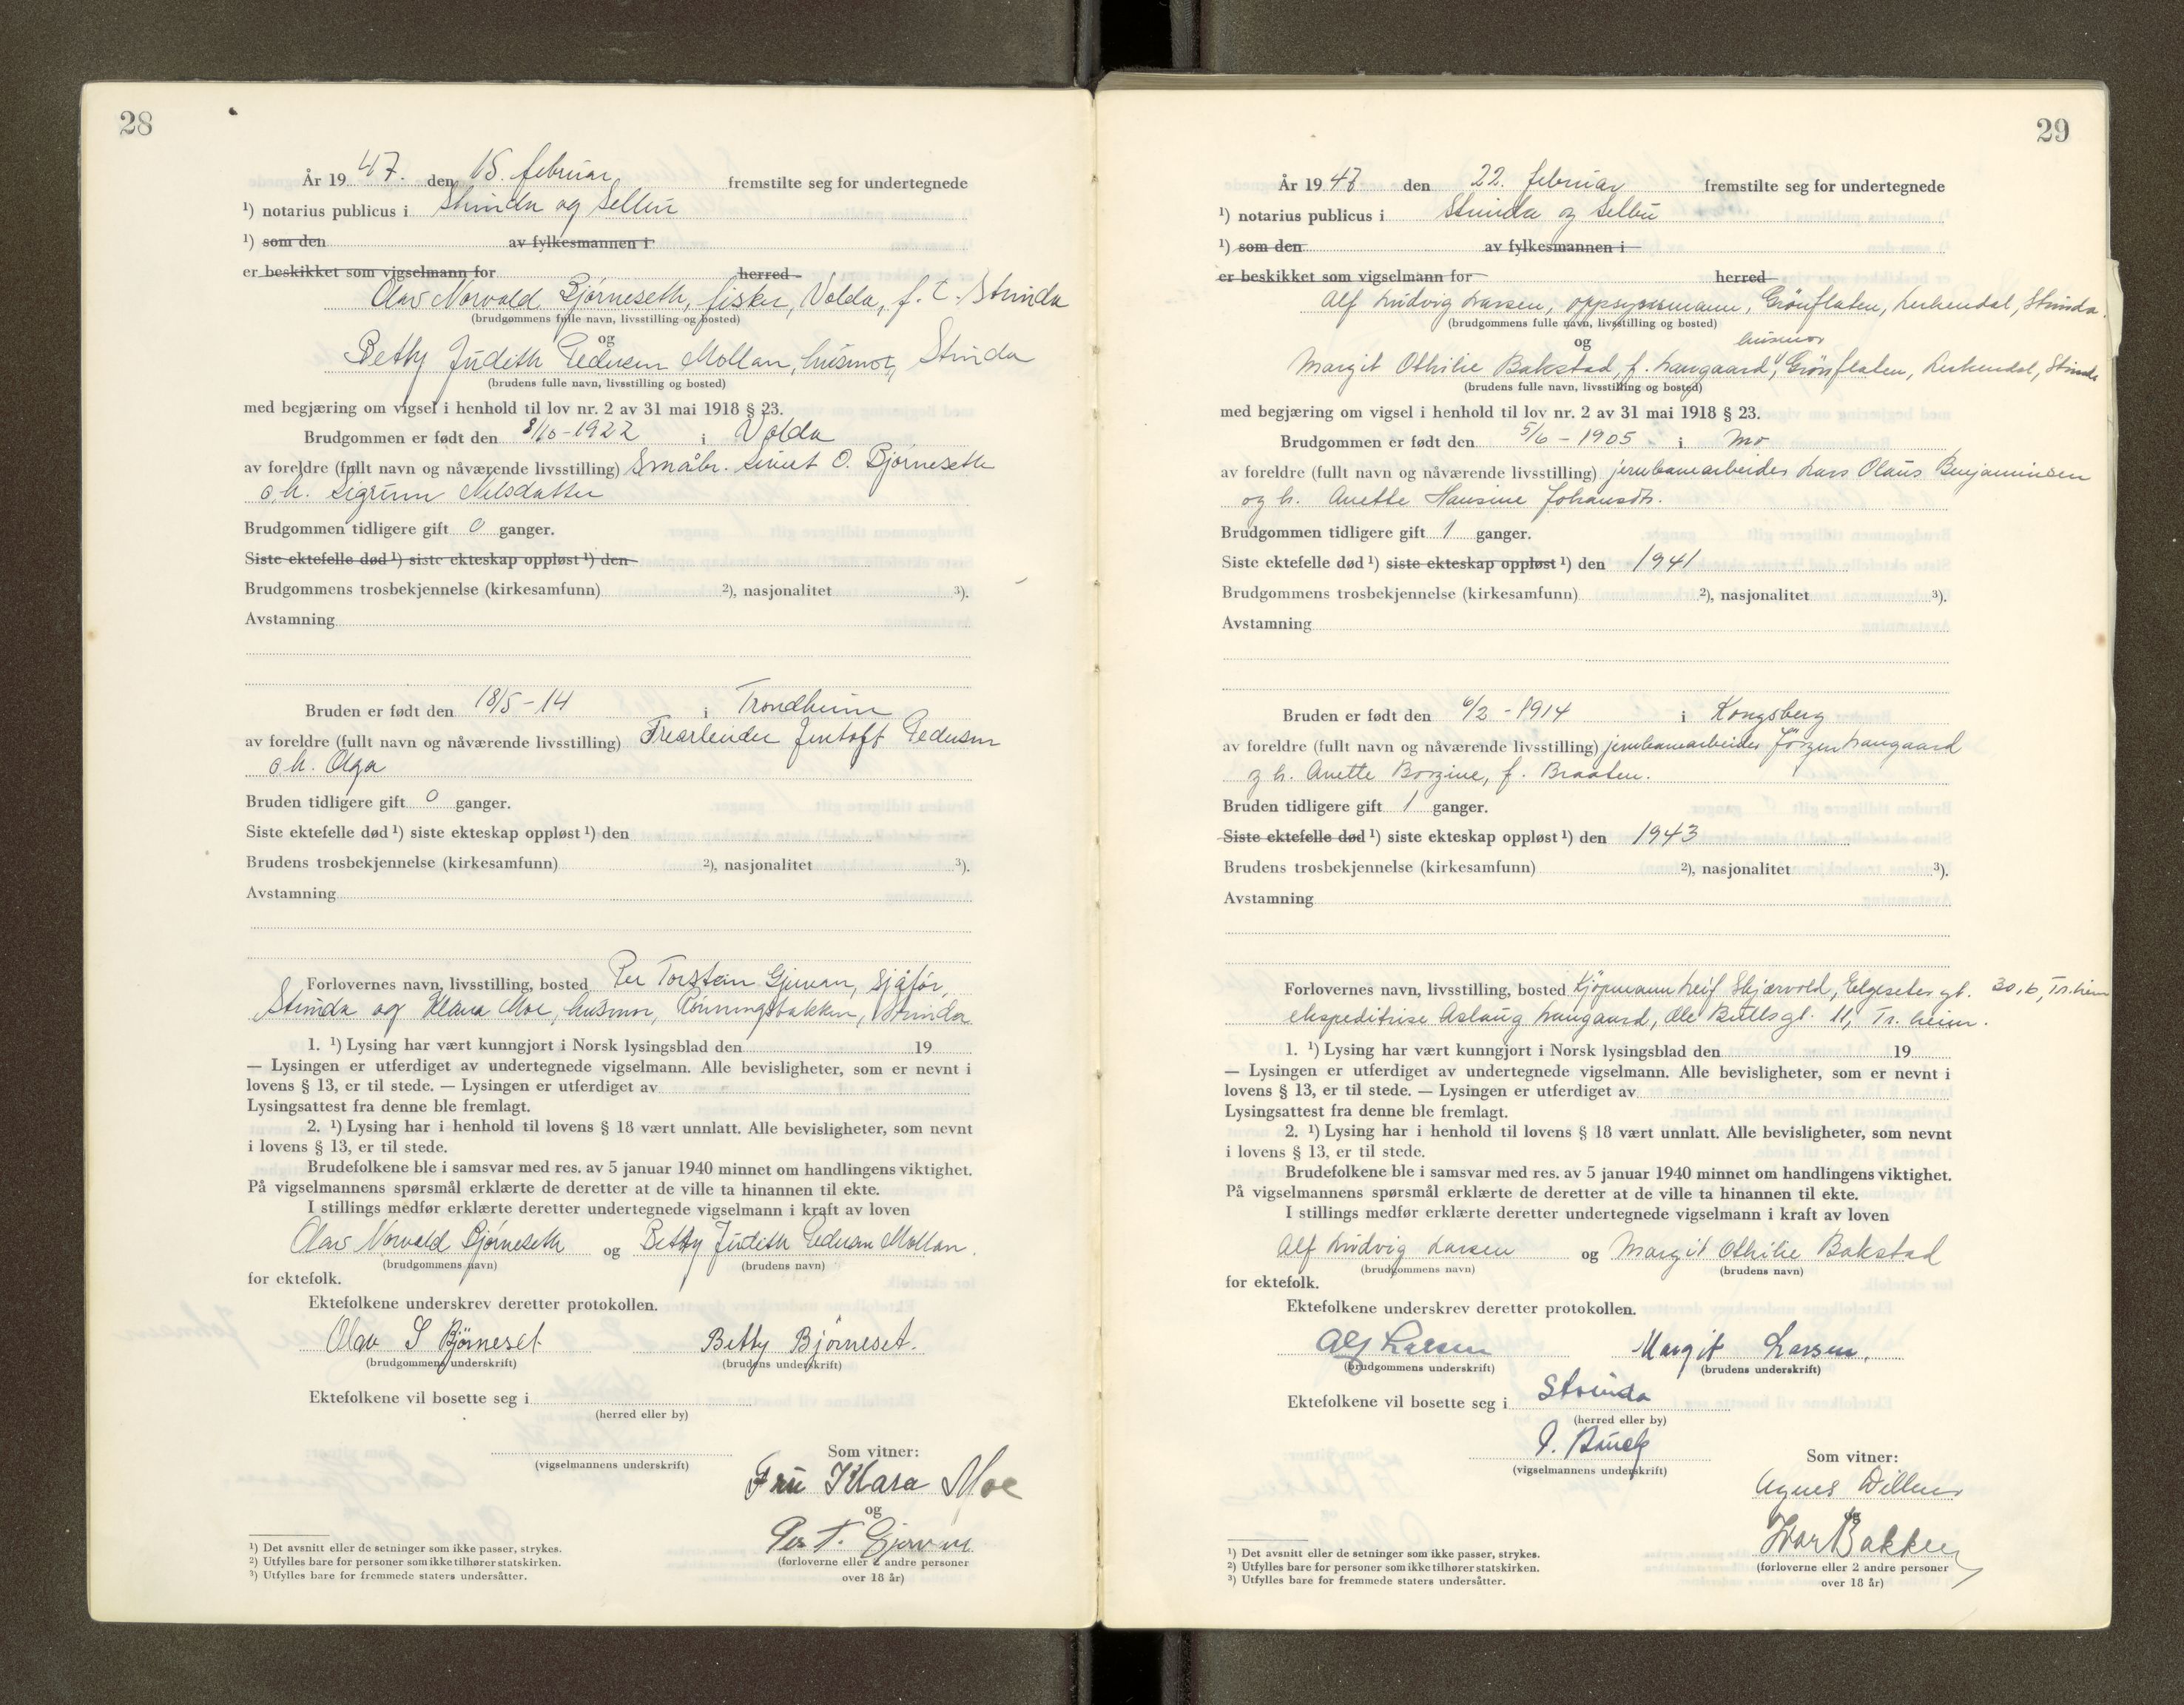 28
År 19 47. den 15. februar fremstilte seg for undertegnede
¹) notarius publicus i Strinda og Selbu
¹) som den av fylkesmannen i
er beskikket som vigselmann for herred
Olav Norvald Bjørneseth, fisker, Volda, f. t. Strinda
(brudgommens fulle navn, livsstilling og bosted)
og
Betty Judith Pedersen Mollan, husmor, Strinda
(brudens fulle navn, livsstilling og bosted)
med begjæring om vigsel i henhold til lov nr. 2 av 31 mai 1918 § 23.
Brudgommen er født den 8/10-1922 i Volda
av foreldre (fullt navn og nåværende livsstilling) Småbr. Sivert O. Bjørneseth
o.h. Sigrunn Nilsdatter
Brudgommen tidligere gift 0 ganger.
Siste ektefelle død ¹) siste ekteskap oppløst ¹) den
Brudgommens trosbekjennelse (kirkesamfunn) ²), nasjonalitet ³).
Avstamning
Bruden er født den 18/5-14 i Trondheim
av foreldre (fullt navn og nåværende livsstilling) Trearbeider Jentoft Pedersen
o.h. Olga
Bruden tidligere gift 0 ganger.
Siste ektefelle død ¹) siste ekteskap oppløst ¹) den
Brudens trosbekjennelse (kirkesamfunn) ²), nasjonalitet ³).
Avstamning
Forlovernes navn, livsstilling, bosted Per Torstein Gjervan, sjåfør,
Strinda og Klara Moe, husmor, Rønningsbakken, Strinda
1. ¹) Lysing har vært kunngjort i Norsk lysingsblad den 19
— Lysingen er utferdiget av undertegnede vigselmann. Alle bevisligheter, som er nevnt i
lovens § 13, er til stede. — Lysingen er utferdiget av
Lysingsattest fra denne ble fremlagt.
2. ¹) Lysing har i henhold til lovens § 18 vært unnlatt. Alle bevisligheter, som nevnt
i lovens § 13, er til stede.
Brudefolkene ble i samsvar med res. av 5 januar 1940 minnet om handlingens viktighet.
På vigselmannens spørsmål erklærte de deretter at de ville ta hinannen til ekte.
I stillings medfør erklærte deretter undertegnede vigselmann i kraft av loven
Olav Norvald Bjørneseth og Betty Judith Pedersen Mollan.
(brudgommens navn) (brudens navn)
for ektefolk.
Ektefolkene underskrev deretter protokollen.
Olav S Bjørneset Betty Bjørneset.
(brudgommens underskrift) (brudens underskrift)
Ektefolkene vil bosette seg i
(herred eller by)
Som vitner:
(vigselmannens underskrift)
Fru Klara Moe
og
Per T. Gjervan
(forloverne eller 2 andre personer
over 18 år)
¹) Det avsnitt eller de setninger som ikke passer, strykes.
²) Utfylles bare for personer som ikke tilhører statskirken.
³) Utfylles bare for fremmede staters undersåtter.
29
År 19 47 den 22. februar fremstilte seg for undertegnede
¹) notarius publicus i Strinda og Selbu
¹) som den av fylkesmannen i
er beskikket som vigselmann for herred
Alf Ludvig Larsen, oppsynsmann, Grönflaten, Lerkendal, Strinda.
(brudgommens fulle navn, livsstilling og bosted)
og husmor
Margit Othilie Bakstad, f. Langaard, Grönflaten, Lerkendal, Strinda
(brudens fulle navn, livsstilling og bosted)
med begjæring om vigsel i henhold til lov nr. 2 av 31 mai 1918 § 23.
Brudgommen er født den 5/6 - 1905 i Mo
av foreldre (fullt navn og nåværende livsstilling) jernbanearbeider Lars Olaus Benjaminsen
og h. Anette Hansine Johansdtr.
Brudgommen tidligere gift 1 ganger.
Siste ektefelle død ¹) siste ekteskap oppløst ¹) den 1941
Brudgommens trosbekjennelse (kirkesamfunn) ²), nasjonalitet ³).
Avstamning
Bruden er født den 6/2 - 1914 i Kongsberg
av foreldre (fullt navn og nåværende livsstilling) jernbanearbeider Jörgen Langaard
og h. Anette Borgine, f. Braaten.
Bruden tidligere gift 1 ganger.
Siste ektefelle død ¹) siste ekteskap oppløst ¹) den 1943
Brudens trosbekjennelse (kirkesamfunn) ²), nasjonalitet ³).
Avstamning
Forlovernes navn, livsstilling, bosted Kjöpmann Leif Skjærvold, Elgeseter gt. 30, b, Tr.heim
ekspeditrise Aslaug Langaard, Ole Bulls gt. 11, Tr. heim.
1. ¹) Lysing har vært kunngjort i Norsk lysingsblad den 19
— Lysingen er utferdiget av undertegnede vigselmann. Alle bevisligheter, som er nevnt i
lovens § 13, er til stede. — Lysingen er utferdiget av
Lysingsattest fra denne ble fremlagt.
2. ¹) Lysing har i henhold til lovens § 18 vært unnlatt. Alle bevisligheter, som nevnt
i lovens § 13, er til stede.
Brudefolkene ble i samsvar med res. av 5 januar 1940 minnet om handlingens viktighet.
På vigselmannens spørsmål erklærte de deretter at de ville ta hinannen til ekte.
I stillings medfør erklærte deretter undertegnede vigselmann i kraft av loven
Alf Ludvig Larsen og Margit Othilie Bakstad
(brudgommens navn) (brudens navn)
for ektefolk.
Ektefolkene underskrev deretter protokollen.
Alf Larsen Margit Larsen.
(brudgommens underskrift) (brudens underskrift)
Ektefolkene vil bosette seg i Strinda
(herred eller by)
(vigselmannens underskrift)
Som vitner:
Agnes
og
Ivar Bakken
(forloverne eller 2 andre personer
over 18 år)
¹) Det avsnitt eller de setninger som ikke passer, strykes.
²) Utfylles bare for personer som ikke tilhører statskirken.
³) Utfylles bare for fremmede staters undersåtter.